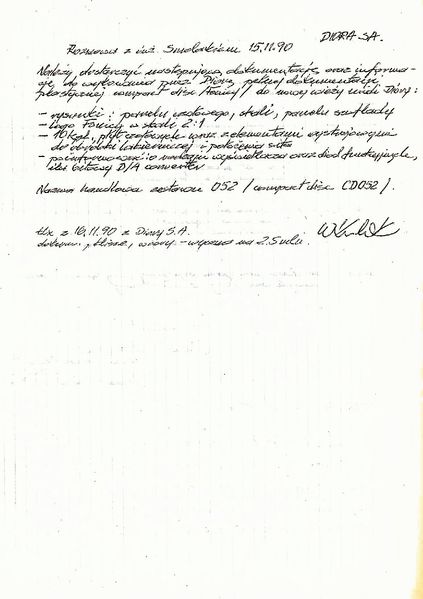 DIORA S.A.
Rozmowa z inż Smolankiem 15.11.90
Należy dostarczyć następującą dokumentację oraz informa-
cje do wykonania przez Diorę pełnej dokumentacji
plastycznej compact disc Fonicy do nowej wieży midi Diory:
- rysunki: panelu czołowego, skali, panelu szuflady
- Logo Fonicy w skali 2:1
- 10 kpl. płyt czołowych wraz z elementami występującymi
do obróbki lakierniczej i położenia sita
- poinformować o wyświetlacza oraz diod funkcyjnych,
ilu bitowy D/A converter
Nazwa handlowa zestawu 052 / compact disc CD052 /.
tlx z 16.11.90 z Diory S.A.
dokum., klisze, wzory - na 2.5